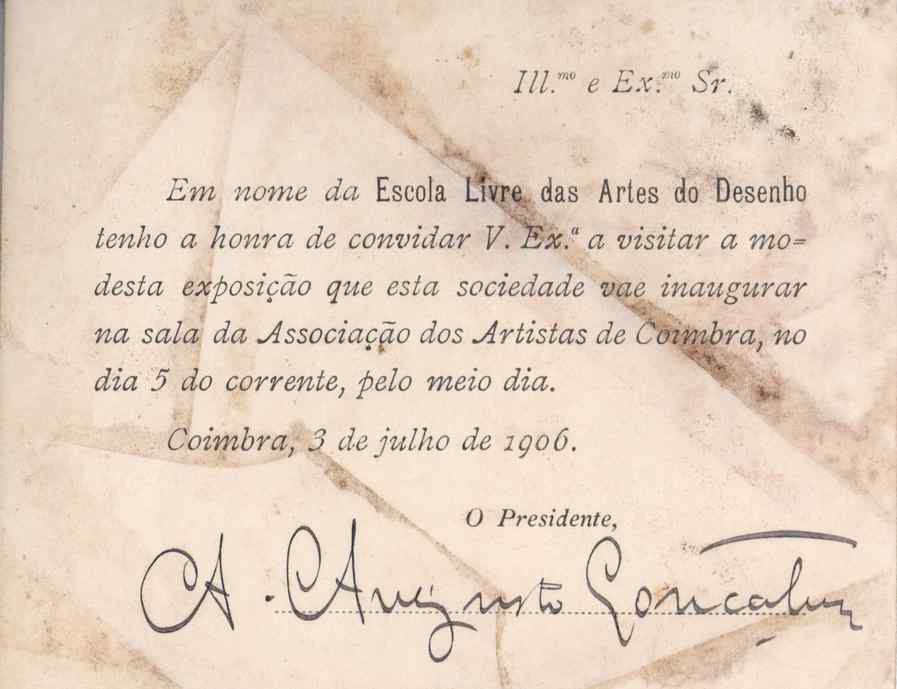 Ill.mo e Ex.mo Sr.
Em nome da Escola Livre das Artes do Desenho
tenho a honra de convidar V. Ex.ª a visitar a mo=
desta exposição que esta sociedade vae inaugurar
na sala da Associação dos Artistas de Coimbra, no
dia 5 do corrente, pelo meio dia.
Coimbra, 3 de julho de 1906.
O Presidente,
A. Augusto Gonçalves